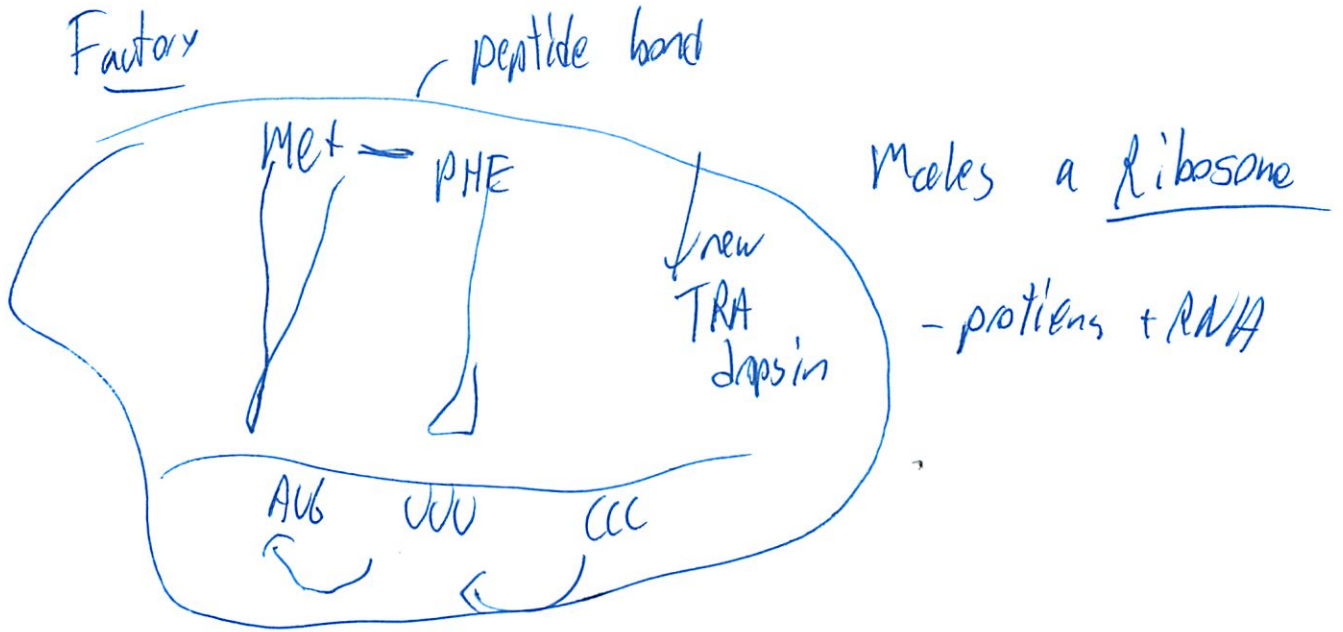 Factory
peptide bond
Met - PHE
new
TRA
drops in
AUG UUU CCC
Makes a Ribosome
- protiens + RNA